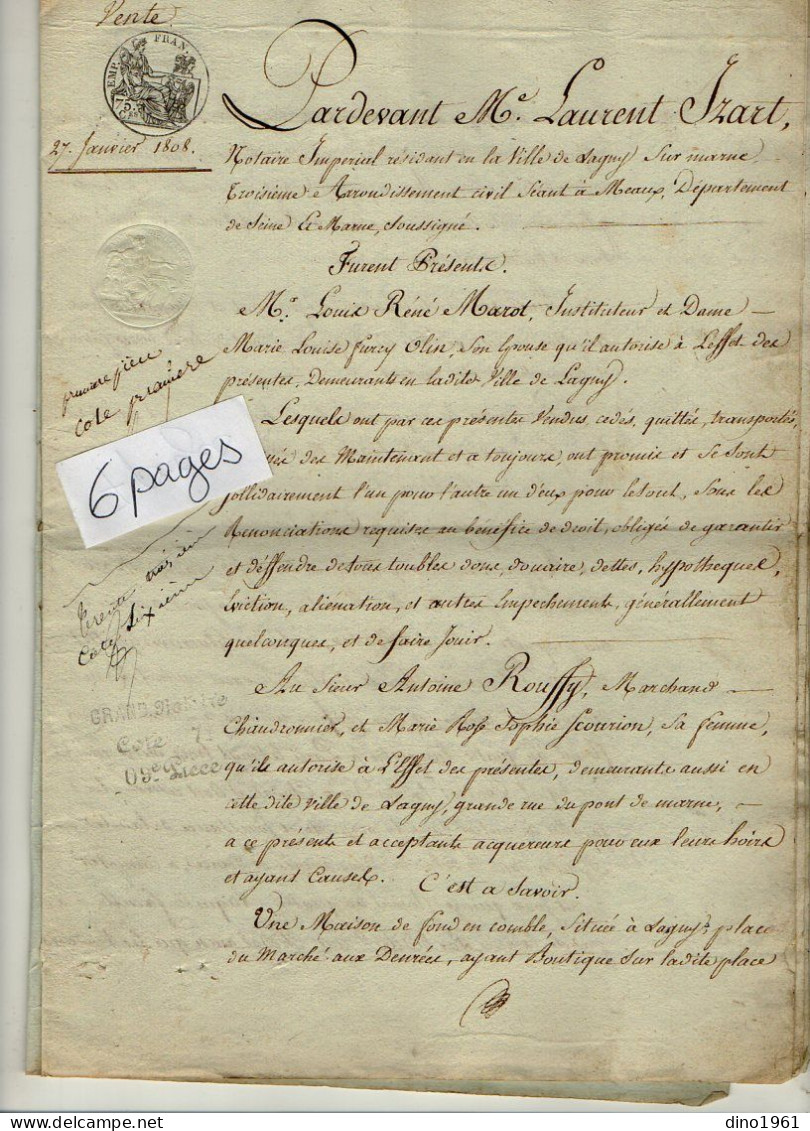 Vente
EMP. FRAN.
75 C.
27. Janvier 1808.
Pardevant Me. Laurent Izart,
Notaire Imperial résidant en la Ville de Lagny Sur marne
troisième Arondissement civil Séant à Meaux, Département
de Seine & Marne, soussigné.
Furent Présents.
Mr. Louis Réné Marot, Instituteur et Dame —
Marie Louise furcy Olin, Son Epouse qu'il autorise à L'effet des
présentes, Demeurants en ladite Ville de Lagny.
première
cote première
Lesquels ont par ces présentes Vendus, cedés, quittés, transportés,
des Maintenant et a toujours, ont promis et Se Sont
Sollidairement l'un pour l'autre un d'eux pour letout, Sous les
Renonciations requises au benefice de droit, obligés de garantir
et déffendre de tous toubles dons, douaire, dettes, hypotheques,
Eviction, aliénation, et autres Empechements généralement
quelconques, et de faire Jouir.
6 pages
Cote Sixième
Au Sieur Antoine Rouffy, Marchand —
Chaudronnier, et Marie Rose Sophie Scourion, Sa femme,
qu'ils autorise à L'Effet des présentes, demeurants aussi en
cette dite Ville de Lagny, grande rue du pont de marne, —
a ce présents et acceptants acquereurs pour eux leurs hoirs
et ayant Causes. C'est a Savoir.
GRAND
Cote 7
Une Maison de fond en comble, Située à Lagny, place
du Marché aux Denrées, ayant Boutique Sur ladite place
dino1961